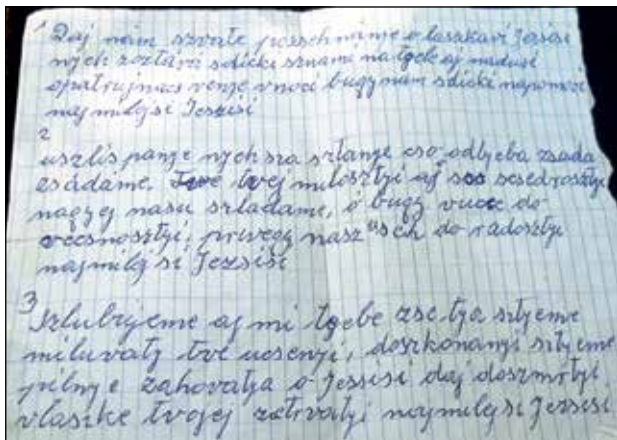 1 Daj nám szvaté pozsehnánye o laszkaví Jezsisi
nych rozlúcsi sdicki sznami na tyele aj na dusi
opatrujnas venye vnoci bugy nám sdicki napomoci
naj milejsi Jezsisi
2
uszlis panye nych sza sztanye cso odtyeba zsáda
zsádáme. tvej milosztyi aj scsedrosztyi
nagyej nasu szkladáme, o bugy vucce do
vecsnosztyi, privegy nasz usch do radosztyi
najmilejsi Jezsisi
3
Szlubujeme aj mi tyebe zse tya sztyeme
miluvaty tvé ucsenyi, doszkonanyi sztyeme
pilnye zahovatya o Jezsisi daj doszmrtyi
vlaszke tvojej zotrvatyi najmilejsi Jezsisi